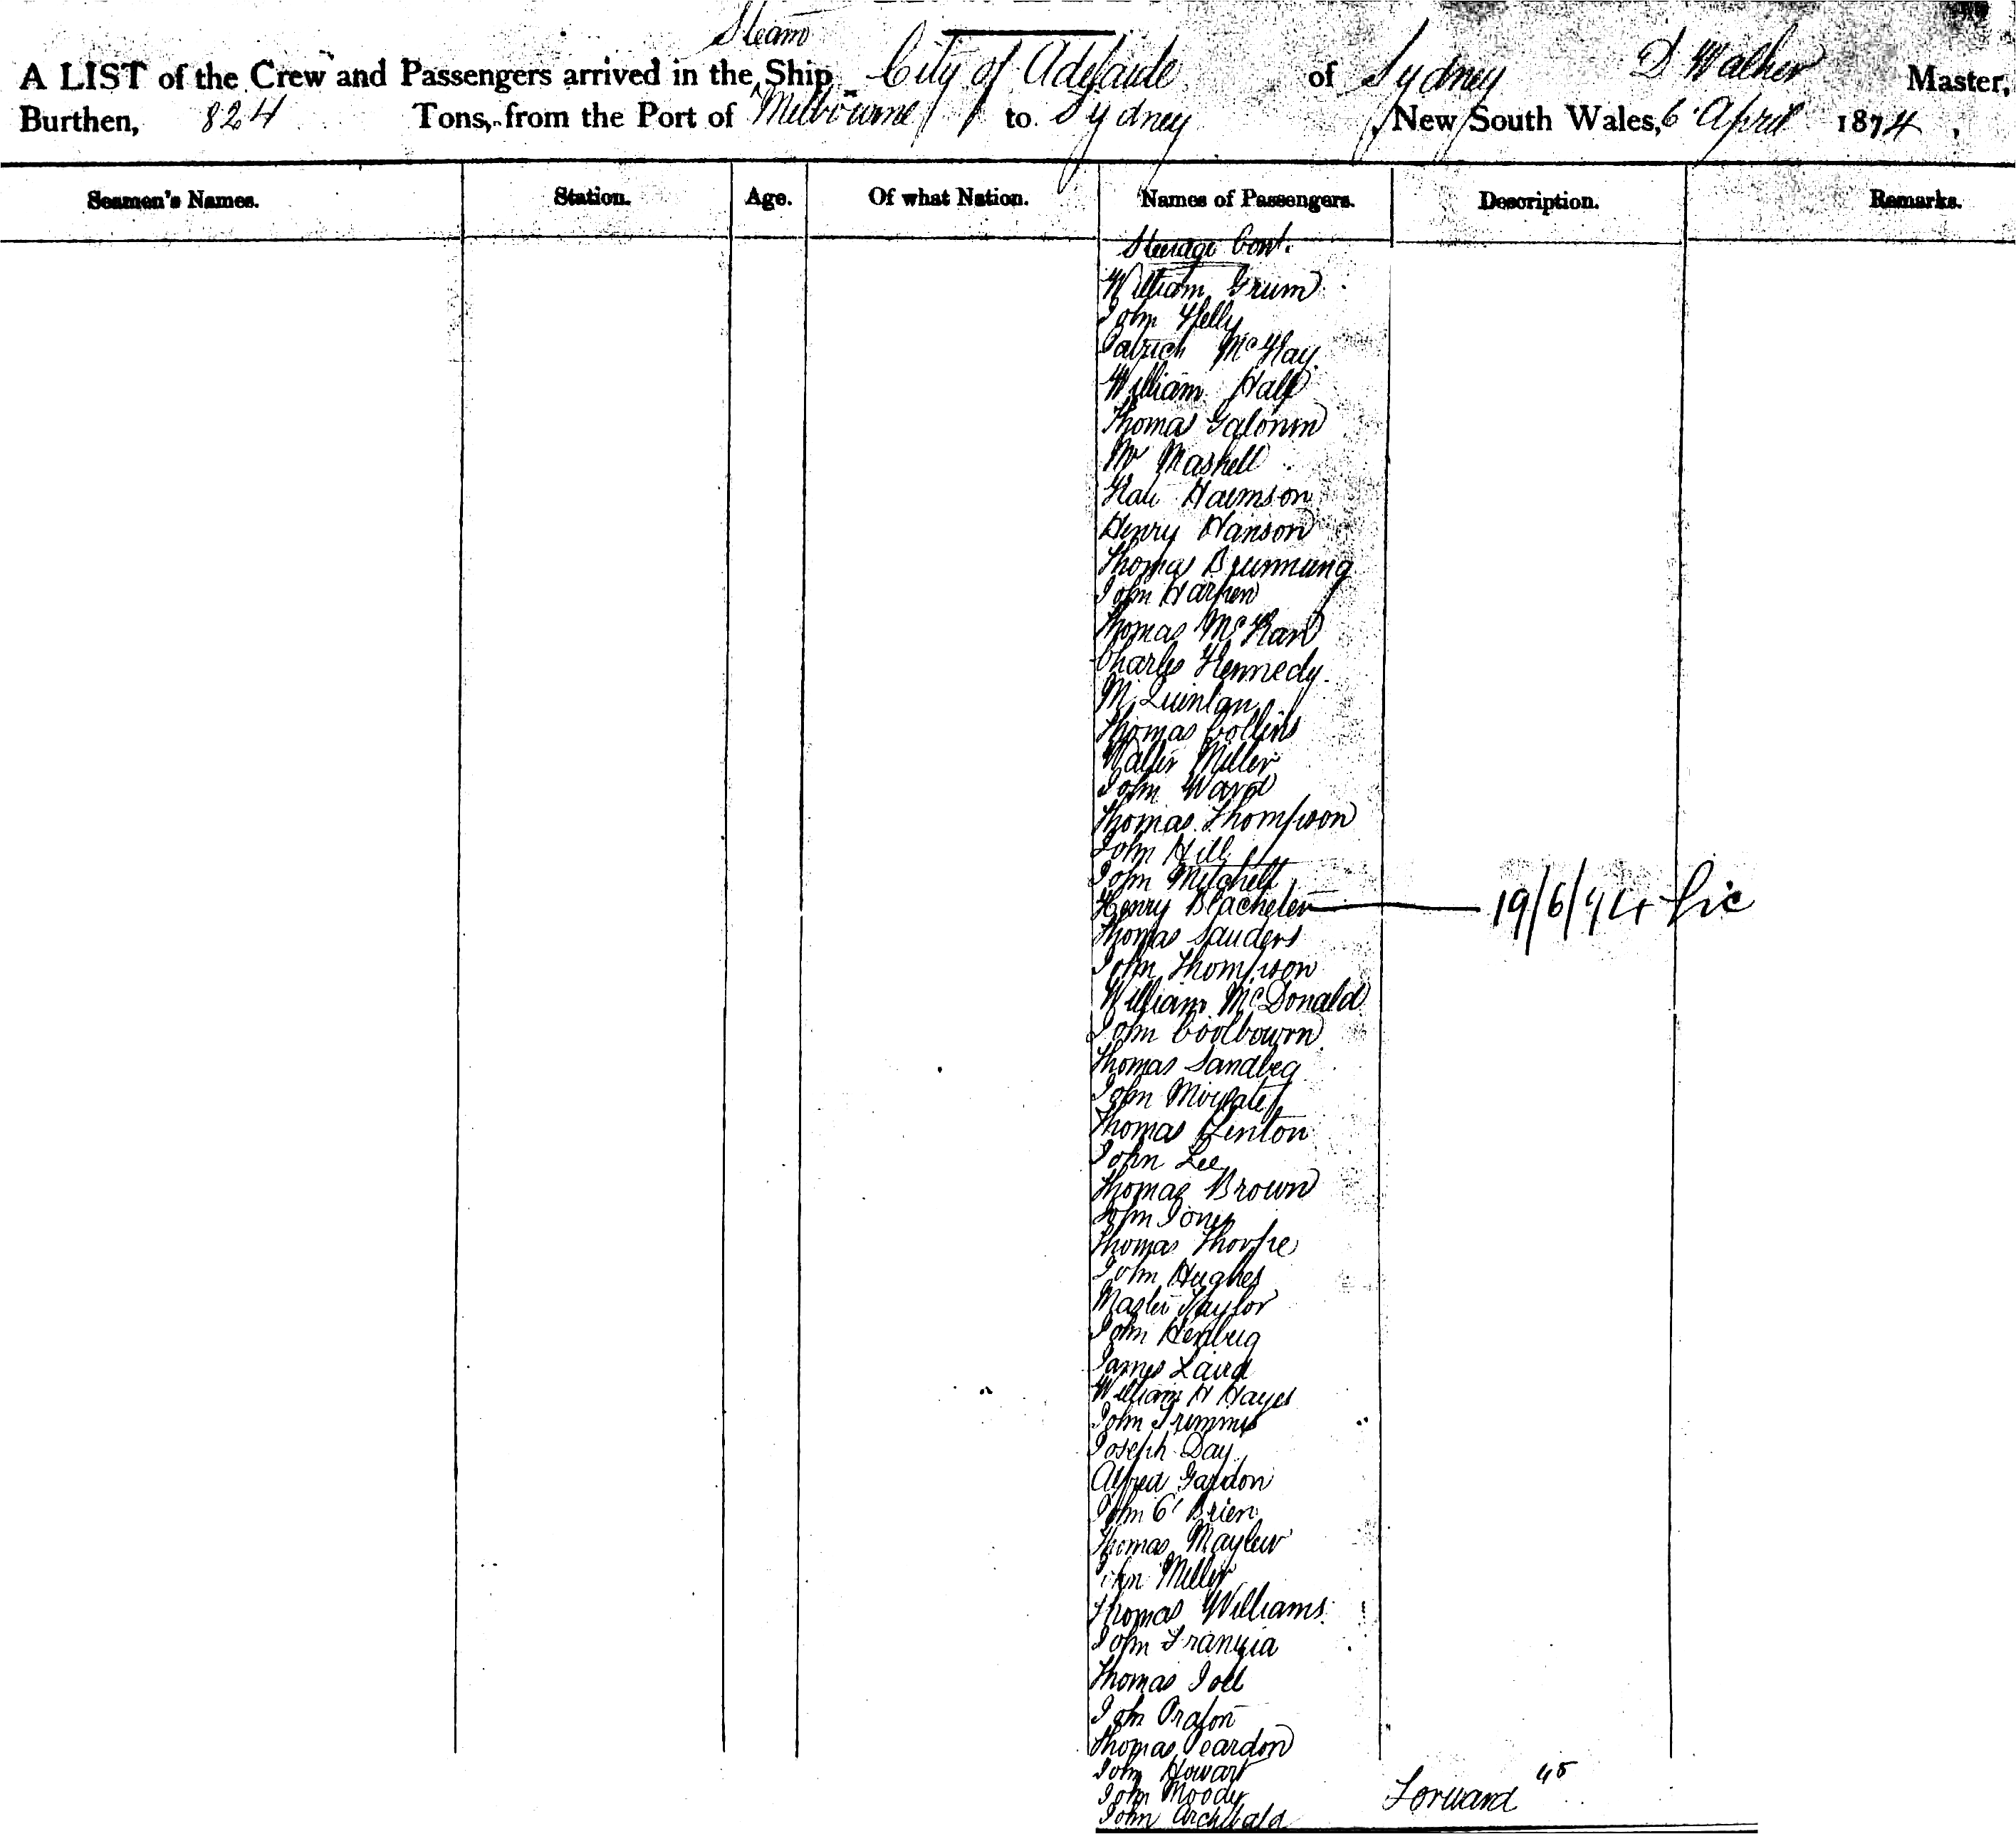 Steam
A LIST of the Crew and Passengers arrived in the Ship City of Adelaide of Sydney D Walker Master,
Burthen, 824 Tons, from the Port of Melbourne to Sydney, New South Wales, 6 April 1874,
Seamen's Names. Station. Age. Of what Nation. Names of Passengers. Description. Remarks.
Steerage Cont.
William Grum
John Kelly
Patrick McKay
William Hall
Thomas
Mr Maskell
Henry Hanson
Thomas Brunnung
John Harken
Thomas
Charles Kennedy
M Quinlan
Thomas Collins
Walter Miller
John Ward
Thomas Thompson
John Hill
John Mitchell
Henry Blacheler 19/6/94 Lic
Thomas Sauders
John Thompson
William McDonald
John Coolbourn
Thomas Sandbeg
John
Thomas Fenton
John Lee
Thomas Brown
John Jones
Thomas Thorpe
John Hughes
Master Taylor
John
James Laird
William H Hayes
John Trimmer
Joseph Day
Alfred Gardon
John O'Brien
Thomas Maylew
John Miller
Thomas Williams
John
Thomas Joll
John
Thomas Peardon
John Howart
John Moody Forward 45
John Archibald